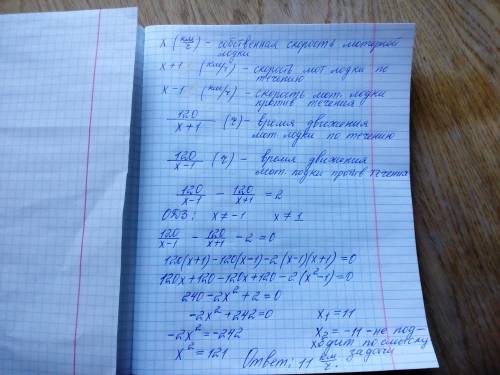 x (км/ч) - собственная скорость моторной
лодки
x+1 (км/ч) - скорость мот лодки по
течению
x-1 (км/ч) - скорость мот. лодки
против течения
120/(x+1) (ч) - время движения
мот. лодки по течению
120/(x-1) (ч) - время движения
мот. лодки против течения
120/(x-1) - 120/(x+1) = 2
ОДЗ: x≠-1 x≠1
120/(x-1) - 120/(x+1) - 2 = 0
120(x+1)-120(x-1)-2(x-1)(x+1)=0
120x+120-120x+120-2(x²-1)=0
240-2x²+2=0
-2x²+242=0
-2x²=-242
x²=121
x₁=11
x₂=-11 - не под-
ходит по смыслу
задачи
Ответ: 11 км/ч.